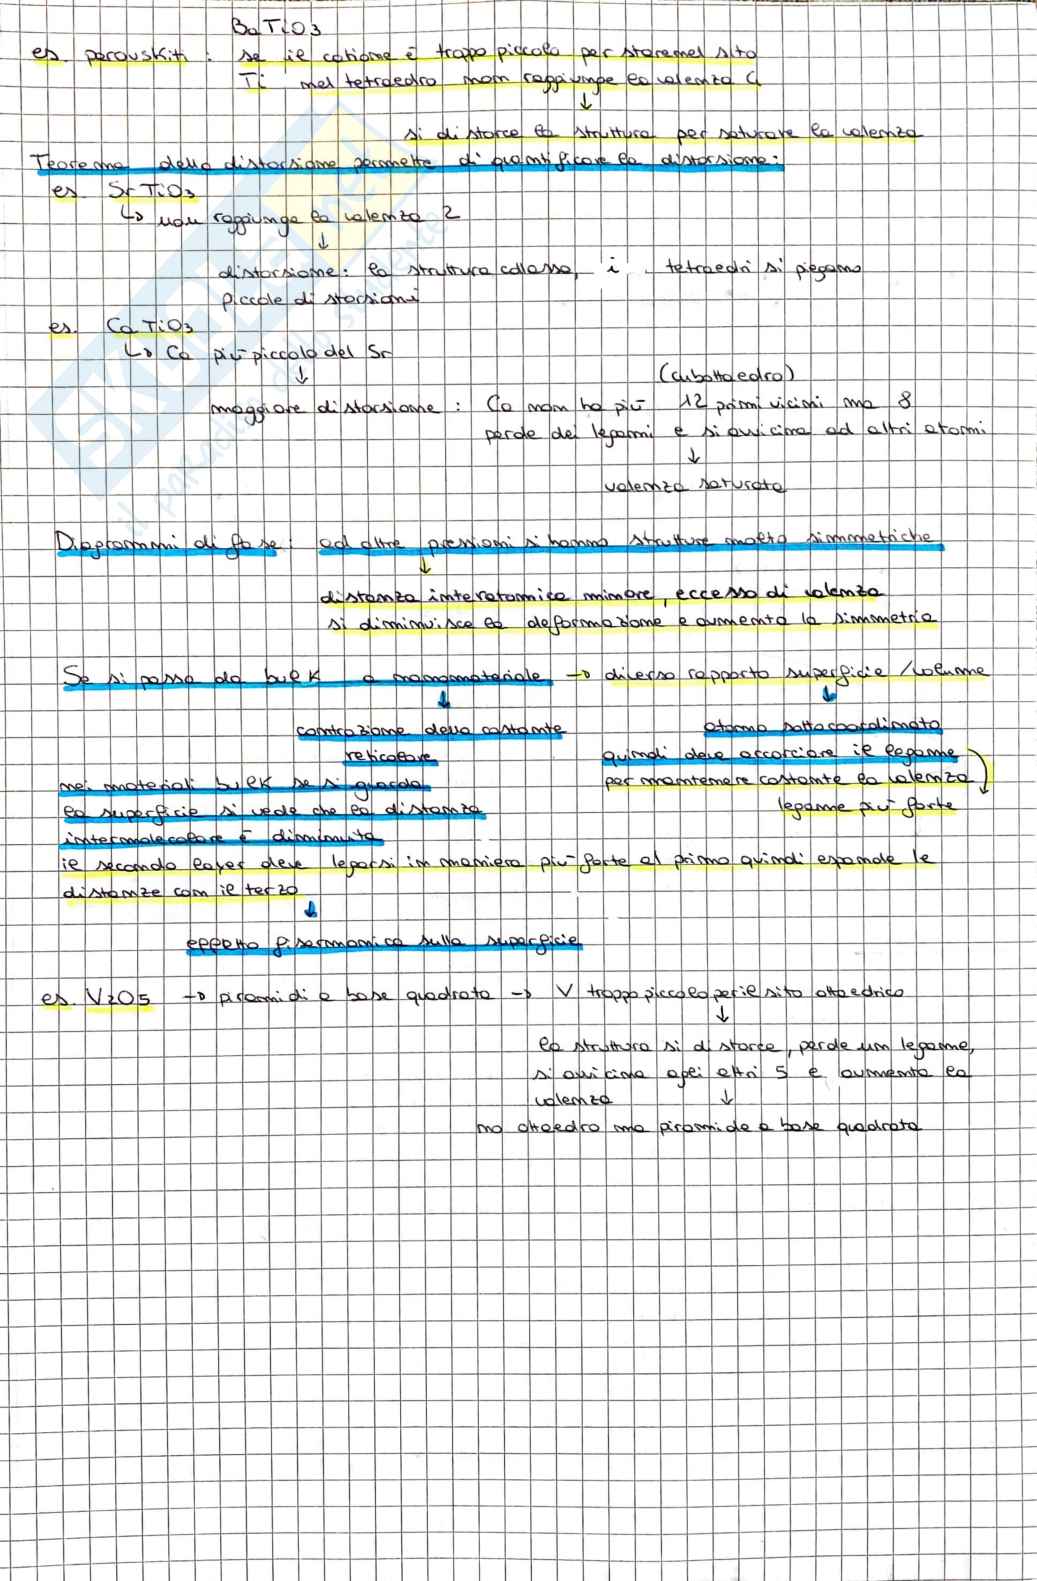 BaTiO3
es. perovskiti : se il catione è troppo piccolo per stare nel sito
Ti nel tetraedro non raggiunge la valenza 4
↓
si distorce la struttura per saturare la valenza
Teorema della distorsione permette di quantificare la distorsione:
es. SrTiO3
↳ non raggiunge la valenza 2
↓
distorsione: la struttura collassa, i tetraedri si piegano
piccole distorsioni
es. CaTiO3
↳ Ca più piccolo del Sr
↓
(cubottaedro)
maggiore distorsione : Ca non ha più 12 primi vicini ma 8
perde dei legami e si avvicina ad altri atomi
↓
valenza saturata
Diagrammi di fase: ad altre pressioni si hanno strutture molto simmetriche
↓
distanza interatomica minore, eccesso di valenza
si diminuisce la deformazione e aumenta la simmetria
Se si passa da bulk a nanomateriale → diverso rapporto superficie/volume
↓ ↓
contrazione della costante atomo sottocoordinato
reticolare quindi deve accorciare il legame
nei materiali bulk se si guarda per mantenere costante la valenza
la superficie si vede che la distanza legame più forte
intermolecolare è diminuita
il secondo layer deve legarsi in maniera più forte al primo quindi espande le
distanze con il terzo
↓
effetto fisarmonica sulla superficie
es. V2O5 → piramidi a base quadrata → V troppo piccolo per il sito ottaedrico
↓
la struttura si distorce, perde un legame,
si avvicina agli altri 5 e aumenta la
valenza ↓
no ottaedro ma piramide a base quadrata
SKUOLA.net
il paradiso dello studente